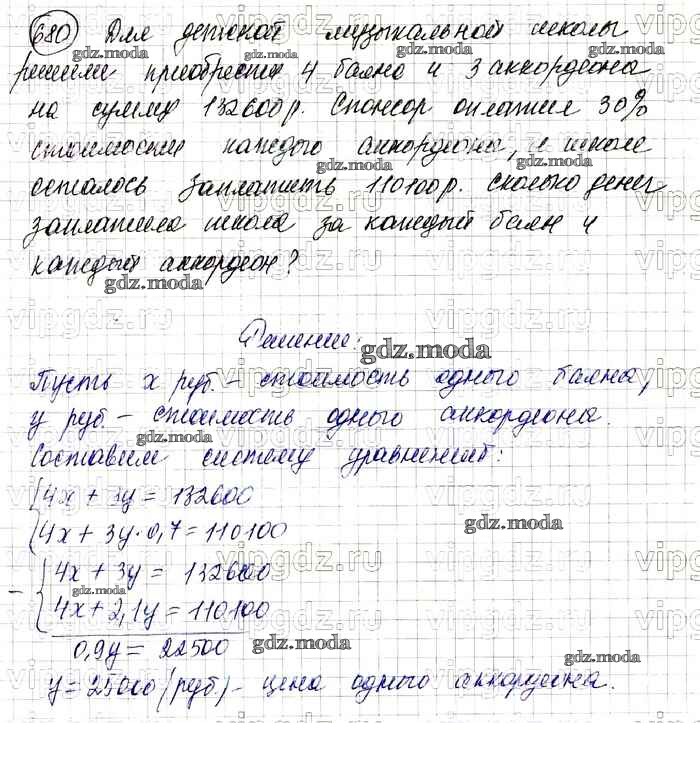 680 Для детской музыкальной школы
решили приобрести 4 баяна и 3 аккордеона
на сумму 132600р. Спонсор оплатил 30%
стоимости каждого аккордеона, и школе
осталось заплатить 110100р. Сколько денег
заплатила школа за каждый баян и
каждый аккордеон?
Решение:
Пусть x руб. – стоимость одного баяна,
y руб. – стоимость одного аккордеона.
Составим систему уравнений:
{4x + 3y = 132600
{4x + 3y·0,7 = 110100
– {4x + 3y = 132600
{4x + 2,1y = 110100
0,9y = 22500
y = 25000 (руб) – цена одного аккордеона.
gdz.moda
vipgdz.ru